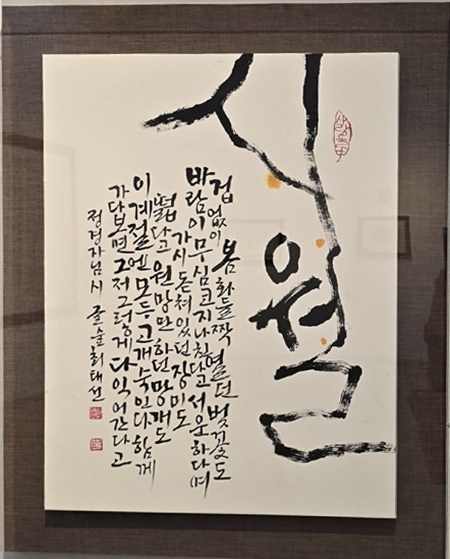 시월
겁 없이 봄 화들짝 펼던 벚꽃도
바람이 무심코 지나친다고 서운하다며
가시 돋쳐 있던 장미도
떫다고 원망만 하던 망개도
이 계절엔 모두 고개 숙인다 함께
가다보면 그저 그렇게 다 익어간다고
정경자님 시